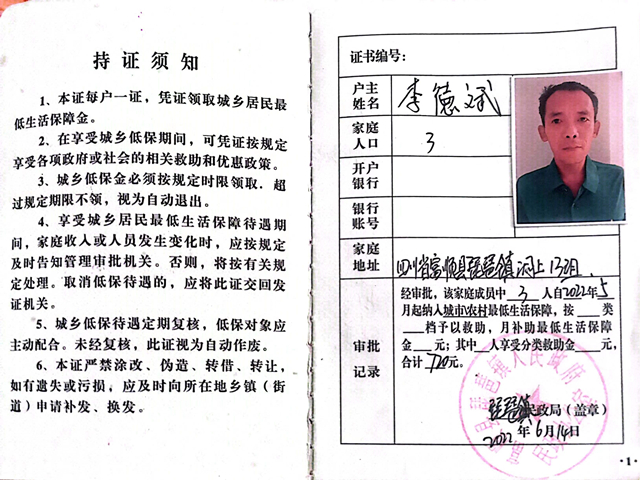 持证须知
1、本证每户一证，凭证领取城乡居民最
低生活保障金。
2、在享受城乡低保期间，可凭证按规定
享受各项政府或社会的相关救助和优惠政策。
3、城乡低保金必须按规定时限领取．超
过规定期限不领，视为自动退出。
4、享受城乡居民最低生活保障待遇期
间，家庭收入或人员发生变化时，应按规定
及时告知管理审批机关。否则，将按有关规
定处理。取消低保待遇的，应将此证交回发
证机关。
5、城乡低保待遇定期复核，低保对象应
主动配合。未经复核，此证视为自动作废。
6、本证严禁涂改、伪造、转借、转让，
如有遗失或污损，应及时向所在地乡镇（街
道）申请补发、换发。
证书编号：
户主
姓名
李德斌
家庭
人口
3
开户
银行
银行
账号
家庭
地址
四川省富顺县琵琶镇河上13组
审批
记录
经审批，该家庭成员中 3 人自2022年5
月起纳入城市农村最低生活保障，按 类
档予以救助，月补助最低生活保障
金 元；其中 人享受分类救助金 元，
合计 720元。
琵琶镇民政局（盖章）
2022年6月14日
·1·